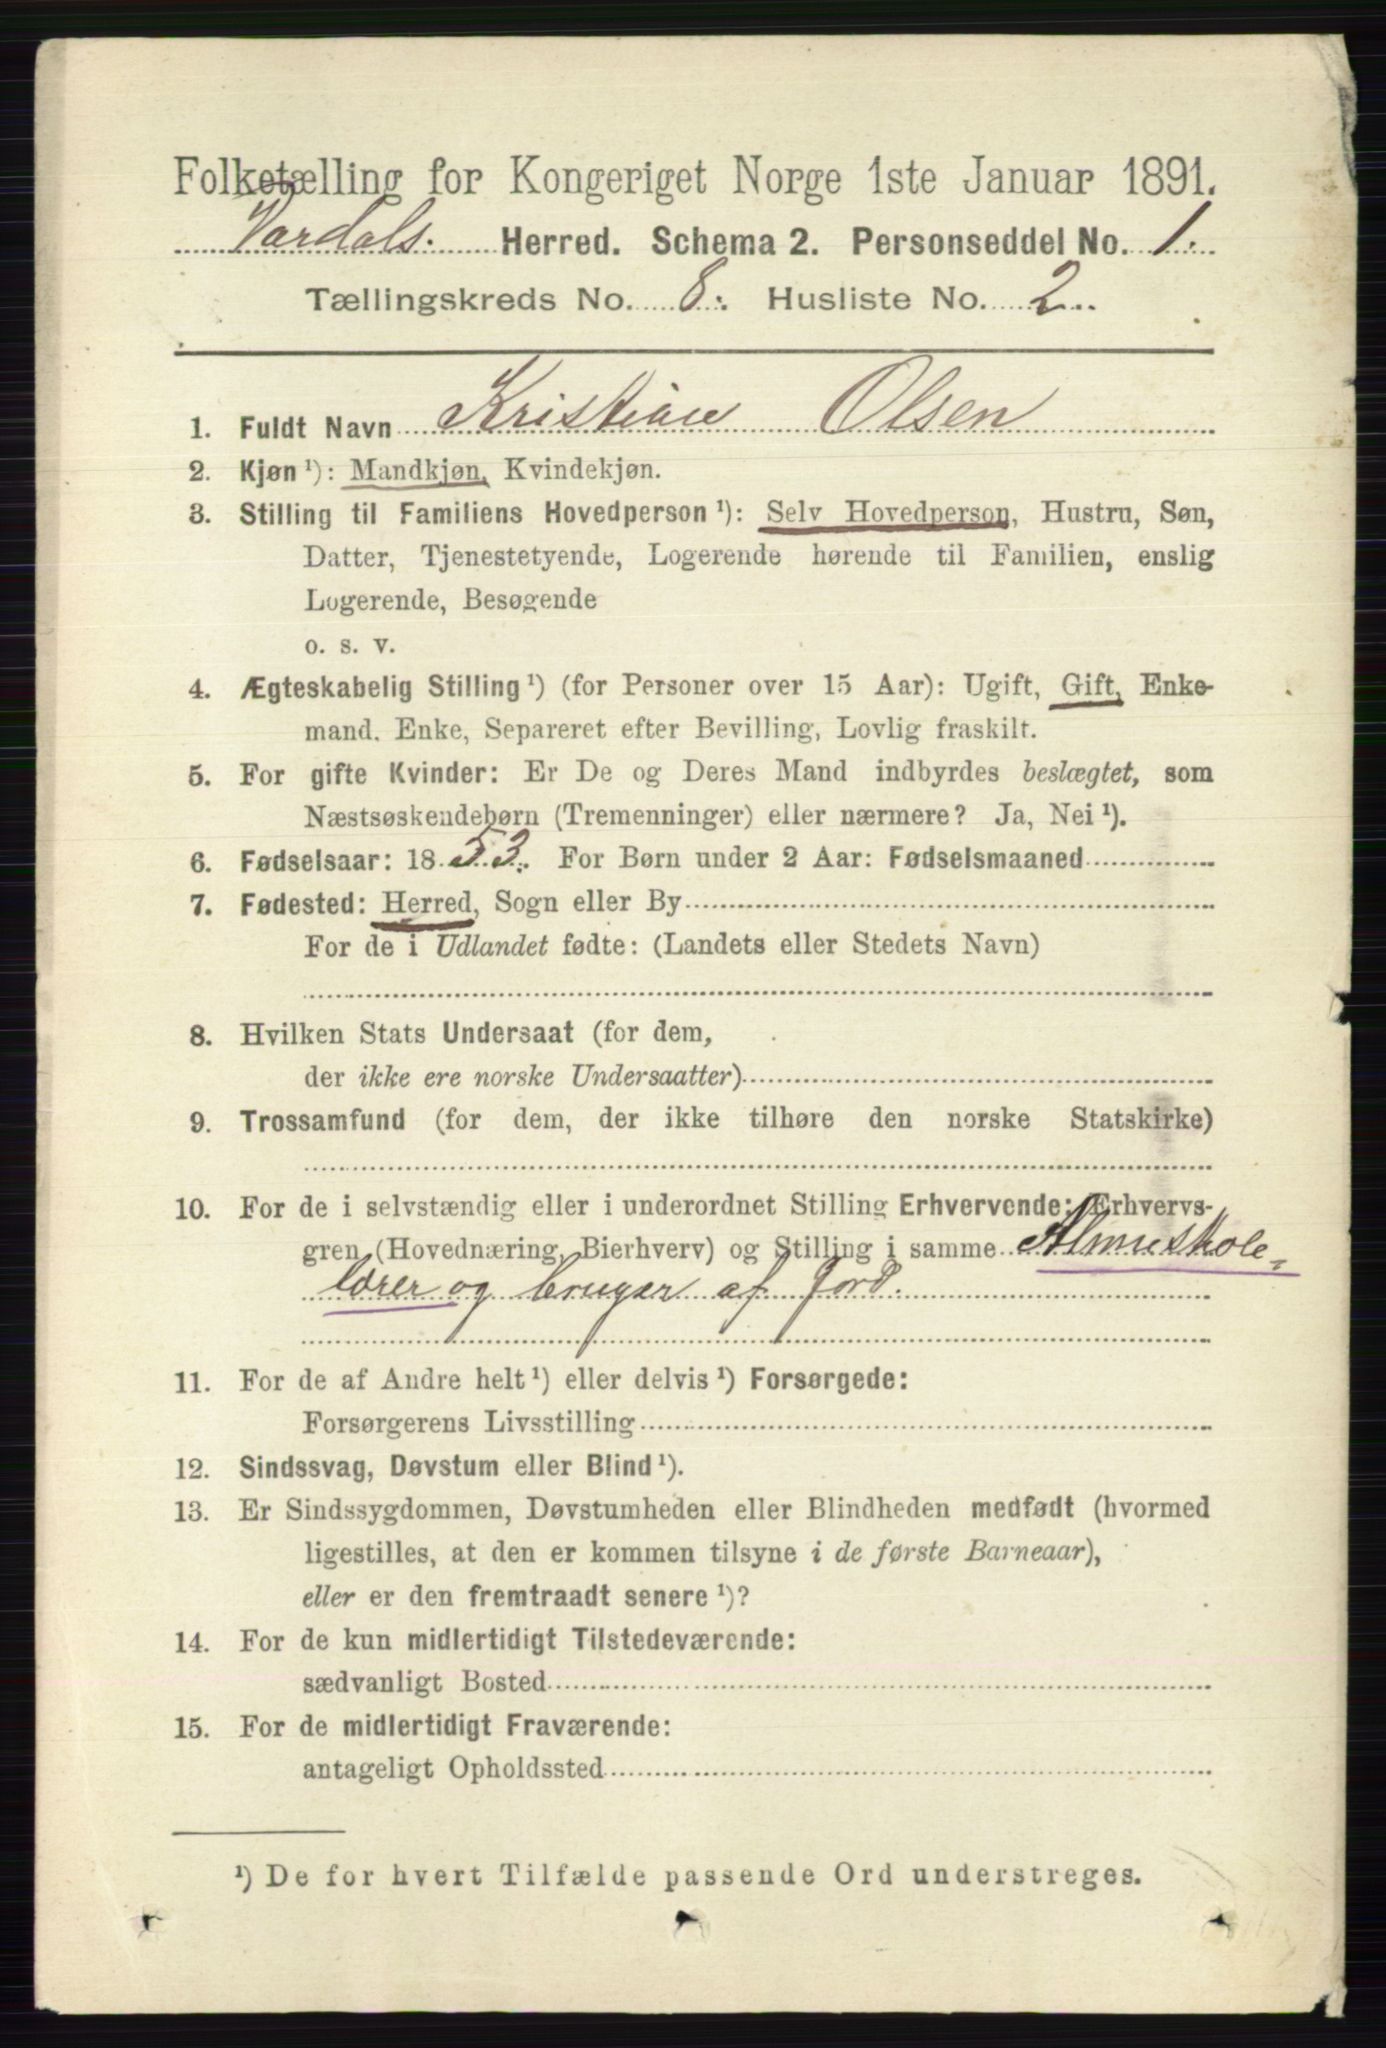 Folketælling for Kongeriget Norge 1ste Januar 1891.
Vardals. Herred. Schema 2. Personseddel No. 1.
Tællingskreds No. 8. Husliste No. 2.
1. Fuldt Navn Kristian Olsen
2. Kjøn ¹): Mandkjøn, Kvindekjøn.
3. Stilling til Familiens Hovedperson ¹): Selv Hovedperson, Hustru, Søn,
Datter, Tjenestetyende, Logerende hørende til Familien, enslig
Logerende, Besøgende
o. s. v.
4. Ægteskabelig Stilling ¹) (for Personer over 15 Aar): Ugift, Gift, Enke-
mand, Enke, Separeret efter Bevilling, Lovlig fraskilt.
5. For gifte Kvinder: Er De og Deres Mand indbyrdes beslægtet, som
Næstsøskendebørn (Tremenninger) eller nærmere? Ja, Nei ¹).
6. Fødselsaar: 1853. For Børn under 2 Aar: Fødselsmaaned
7. Fødested: Herred, Sogn eller By
For de i Udlandet fødte: (Landets eller Stedets Navn)
8. Hvilken Stats Undersaat (for dem,
der ikke ere norske Undersaatter)
9. Trossamfund (for dem, der ikke tilhøre den norske Statskirke)
10. For de i selvstændig eller i underordnet Stilling Erhvervende: Erhvervs-
gren (Hovednæring, Bierhverv) og Stilling i samme Almueskole-
lærer og bruger af Jord.
11. For de af Andre helt ¹) eller delvis ¹) Forsørgede:
Forsørgerens Livsstilling
12. Sindssvag, Døvstum eller Blind ¹).
13. Er Sindssygdommen, Døvstumheden eller Blindheden medfødt (hvormed
ligestilles, at den er kommen tilsyne i de første Barneaar),
eller er den fremtraadt senere ¹)?
14. For de kun midlertidigt Tilstedeværende:
sædvanligt Bosted
15. For de midlertidigt Fraværende:
antageligt Opholdssted
¹) De for hvert Tilfælde passende Ord understreges.